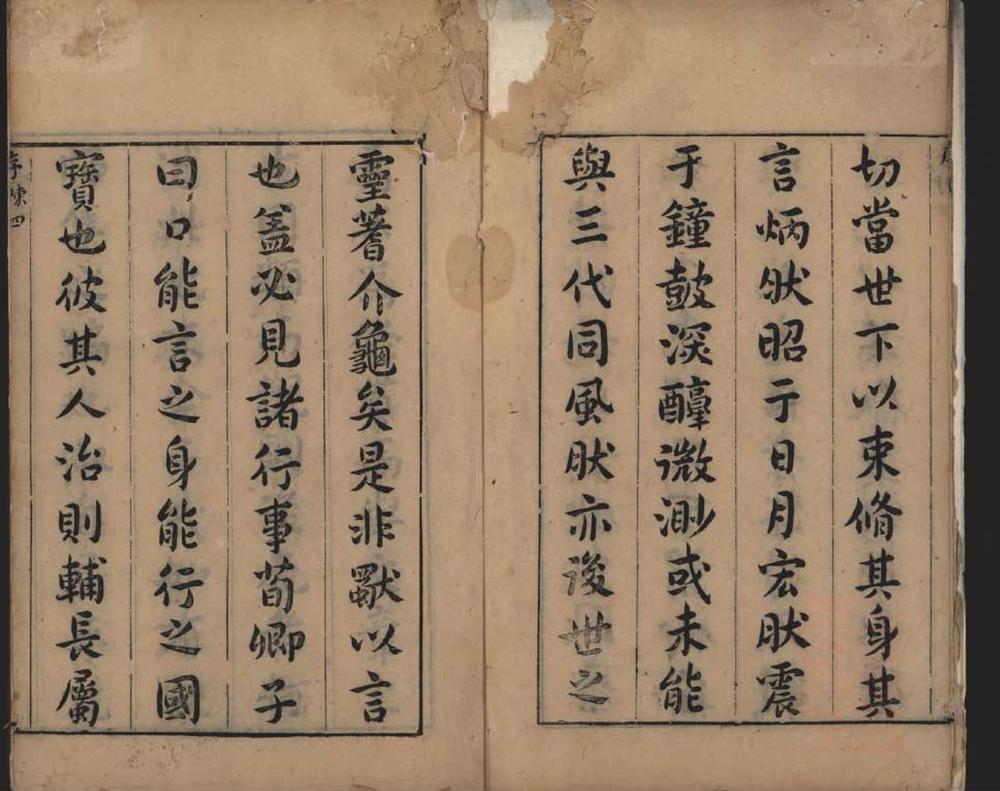 切當世下以束脩其身其
言炳肰昭于日月宏肰震
于鐘鼓深醇微渺或未能
與三代同風肰亦後世之
靈蓍介龜矣是非獸以言
也盖必見諸行事荀卿子
曰口能言之身能行之國
寶也彼其人治則輔長屬